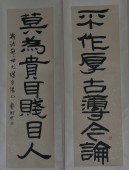 不作厚古薄今論
莫為貴耳賤目人